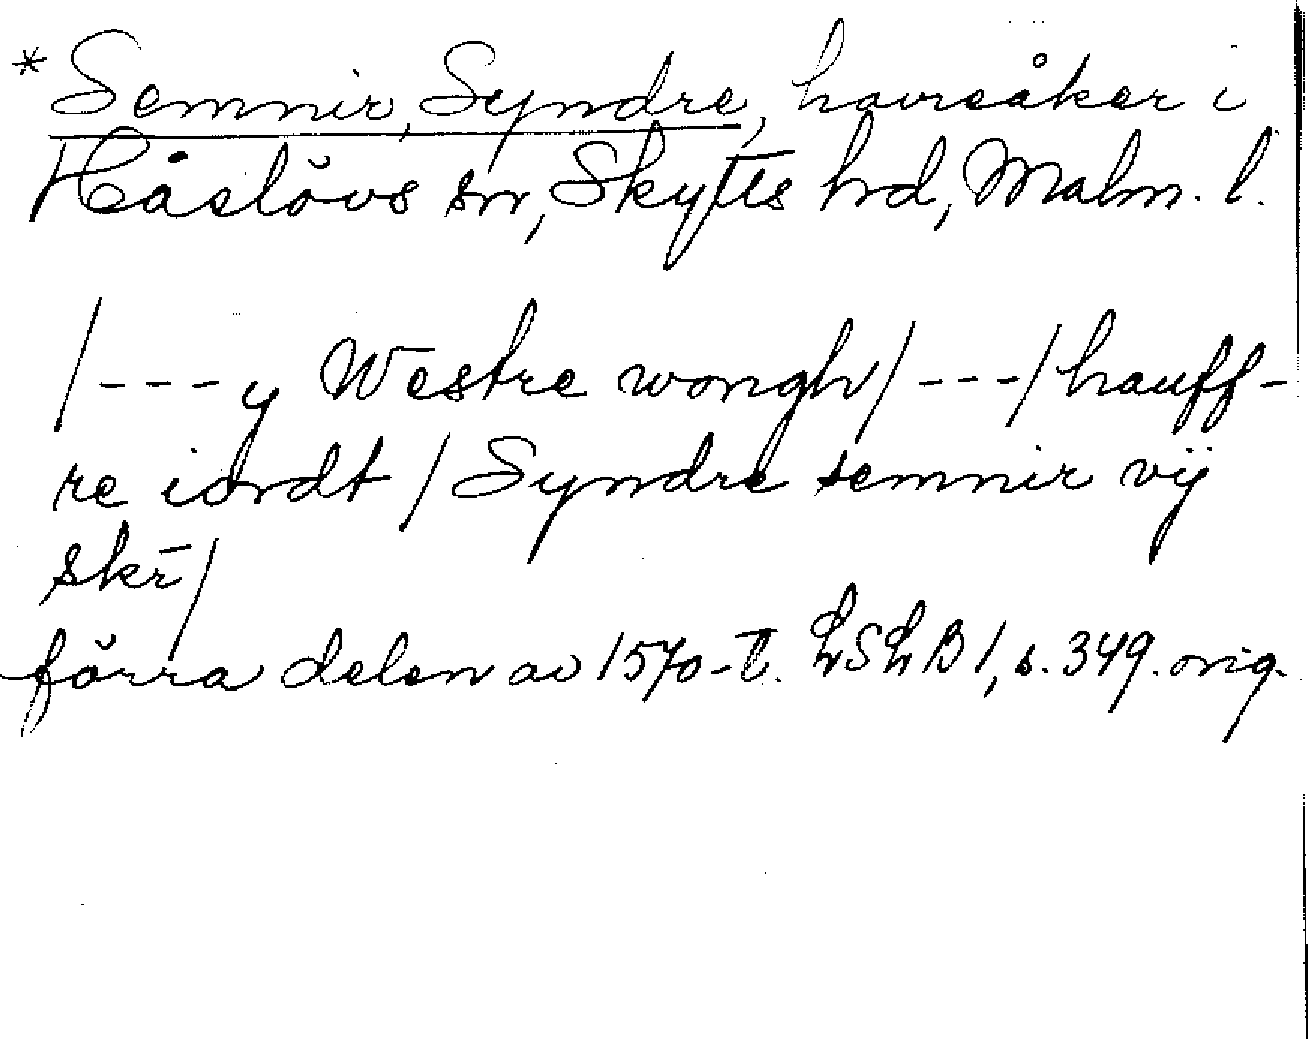 *Semnir, Syndre, havreåker i
Håslövs sn, Skytts hd, Malm. l.
/---y Westre wongh/---/hauff-
re iordt / Syndre semnir vij
skr̄/
förra delen av 1570-t. LSLB 1, s. 349. orig.